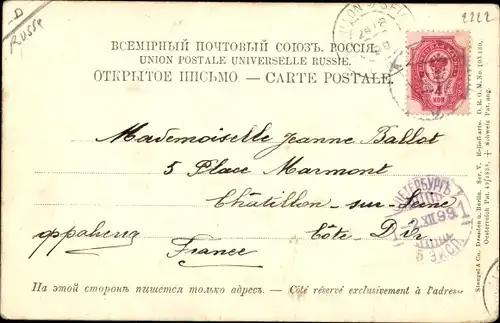 D
RUSSE
2222
ВСЕМІРНЫЙ ПОЧТОВЫЙ СОЮЗЪ. РОССІЯ.
UNION POSTALE UNIVERSELLE RUSSIE.
ОТКРЫТОЕ ПИСЬМО. — CARTE POSTALE.
4
КОП
Mademoiselle Jeanne Ballot
5 Place Marmont
Châtillon-sur-Seine
Côte D'Or
франція
France
ПЕТЕРБУРГЪ
2 XII 99
5 ЭКСП.
На этой сторонѣ пишется только адресъ. — Côté réservé exclusivement à l'adresse
Stengel & Co. Dresden u. Berlin. Ser. V. Reliefkarte. D. R. G. M. No. 103,180,
Oesterreich Pat. 49/1838, + Schweiz Pat. ang.